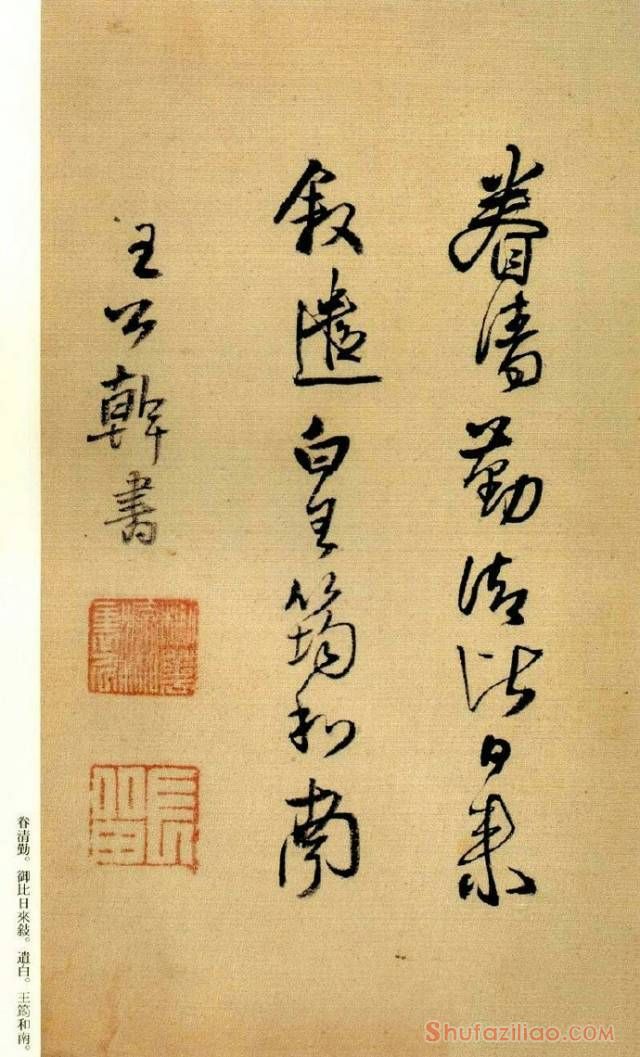 眷清勤清比日來
敘遣白王筠和南
王公幹書
眷清勤。御比日來敍。遣白。王筠和南。
Shufaziliao.com